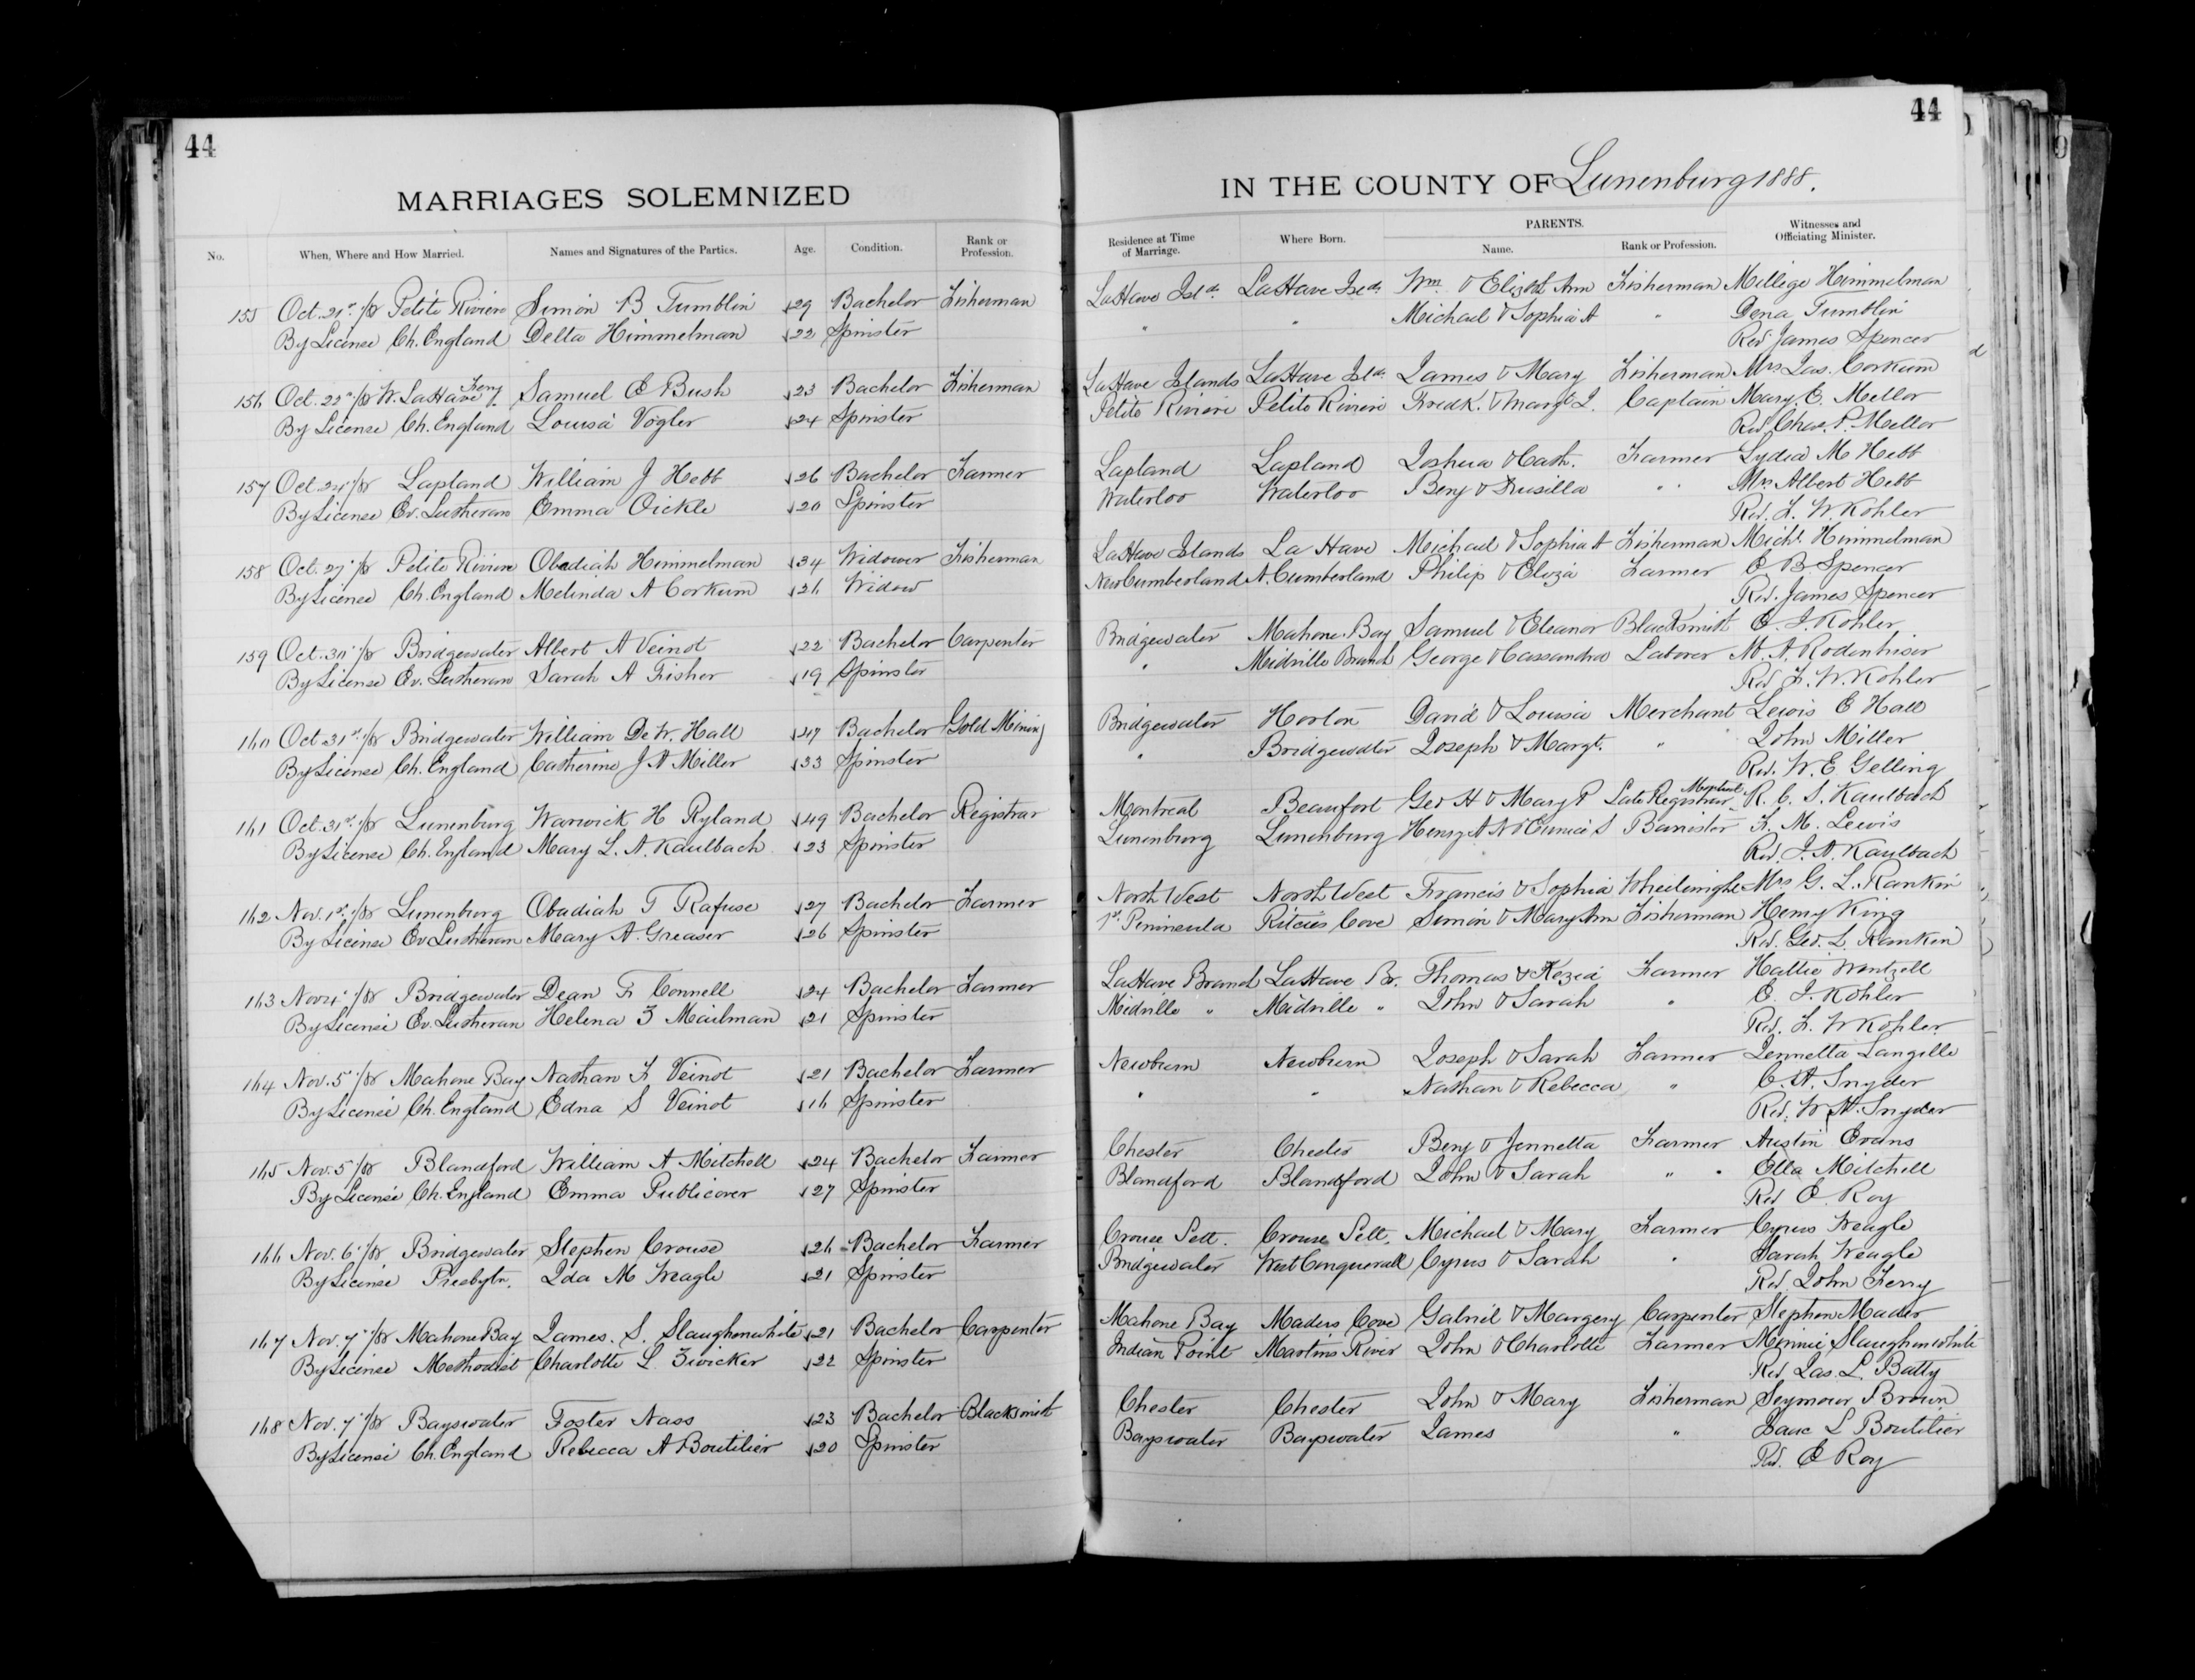 44
44
MARRIAGES SOLEMNIZED
IN THE COUNTY OF Lunenburg 1888.
No. When, Where and How Married. Names and Signatures of the Parties. Age. Condition. Rank or Profession. Residence at Time of Marriage. Where Born. PARENTS. Name. Rank or Profession. Witnesses and Officiating Minister.
155 Oct. 21st /88 Petite Riviere Simon B Tumblin 29 Bachelor Fisherman LaHave Isld. LaHave Isld. Wm & Elizbt Ann Fisherman Millige Himmelman
By License Ch. England Delta Himmelman 22 Spinster " " Michael & Sophia A " Dena Tumblin
Rev. James Spencer
156 Oct. 22 /88 W. LaHave Ferry Samuel E Bush 23 Bachelor Fisherman LaHave Islands LaHave Isld. James & Mary Fisherman Mrs Jas. Corkum
By License Ch. England Louisa Vogler 24 Spinster Petite Riviere Petite Riviere Fredk. & Margt L. Captain Mary E. Mellor
Rev. Chas. P. Mellor
157 Oct. 24 /88 Lapland William J Hebb 26 Bachelor Farmer Lapland Lapland Joshua & Cath. Farmer Lydia M Hebb
By License Ev. Lutheran Emma Oickle 20 Spinster Waterloo Waterloo Benj & Drusilla " " Mrs Albert Hebb
Rev. F. W. Kohler
158 Oct. 27 /88 Petite Riviere Obadiah Himmelman 34 Widower Fisherman LaHave Islands La Have Michael & Sophia A Fisherman Michl. Himmelman
By License Ch. England Melinda A Corkum 26 Widow New Cumberland N. Cumberland Philip & Eliza Farmer E B Spencer
Rev. James Spencer
159 Oct. 30 /88 Bridgewater Albert A Veinot 22 Bachelor Carpenter Bridgewater Mahone Bay Samuel & Eleanor Blacksmith E. J. Kohler
By License Ev. Lutheran Sarah A Fisher 19 Spinster " Midville Branch George & Cassandra Laborer M. A. Rodenhiser
Rev F. W. Kohler
160 Oct 31st /88 Bridgewater William De W. Hall 47 Bachelor Gold Mining Bridgewater Horton David & Louisa Merchant Lewis E Hall
By License Ch. England Catherine J A Miller 33 Spinster " Bridgewater Joseph & Margt. " John Miller
Rev. W. E. Gelling
161 Oct. 31st /88 Lunenburg Warwick H Ryland 49 Bachelor Registrar Montreal Beaufort Geo H & Mary P Late Registrar Montreal R. C. S. Kaulbach
By License Ch. England Mary L. A. Kaulbach 23 Spinster Lunenburg Lunenburg Henry A N & Eunice S Barrister F. M. Lewis
Rev. J. A. Kaulbach
162 Nov. 1st /88 Lunenburg Obadiah T Rafuse 27 Bachelor Farmer North West North West Francis & Sophia Wheelwright Mrs G. L. Rankin
By License Ev Lutheran Mary A. Greaser 26 Spinster 1st Peninsula Ritcies Cove Simon & Mary Ann Fisherman Henry King
Rev. Geo. L. Rankin
163 Nov 4 /88 Bridgewater Dean F Connell 24 Bachelor Farmer LaHave Branch LaHave Br. Thomas & Kezia Farmer Hattie Wentzell
By License Ev. Lutheran Helena Z Mailman 21 Spinster Midville " Midville " John & Sarah " E. J. Kohler
Rev. F. W Kohler
164 Nov. 5 /88 Mahone Bay Nathan F Veinot 21 Bachelor Farmer Newburn Newburn Joseph & Sarah Farmer Jennetta Langille
By License Ch. England Edna S Veinot 16 Spinster " " Nathan & Rebecca " C. A. Snyder
Rev. W. H. Snyder
165 Nov. 5 /88 Blandford William A Mitchell 24 Bachelor Farmer Chester Chester Benj & Jennetta Farmer Austin Evans
By License Ch. England Emma Publicover 27 Spinster Blandford Blandford John & Sarah " " Ella Mitchell
Rev E. Roy
166 Nov. 6 /88 Bridgewater Stephen Crouse 26 Bachelor Farmer Crouse Sett. Crouse Sett. Michael & Mary Farmer Cyrus Weagle
By License Presbytn. Ida M Weagle 21 Spinster Bridgewater West Conquerall Cyrus & Sarah " Sarah Weagle
Rev John Ferry
167 Nov. 7 /88 Mahone Bay James. S. Slaughenwhite 21 Bachelor Carpenter Mahone Bay Maders Cove Gabriel & Margery Carpenter Stephen Mader
By License Methodist Charlotte L. Zwicker 22 Spinster Indian Point Martins River John & Charlotte Farmer Minnie Slaughenwhite
Rev Jas. L. Batty
168 Nov. 7 /88 Bayswater Foster Nass 23 Bachelor Blacksmith Chester Chester John & Mary Fisherman Seymour Brown
By License Ch. England Rebecca A Boutilier 20 Spinster Bayswater Bayswater James " Isaac L Boutilier
Rev. E Roy